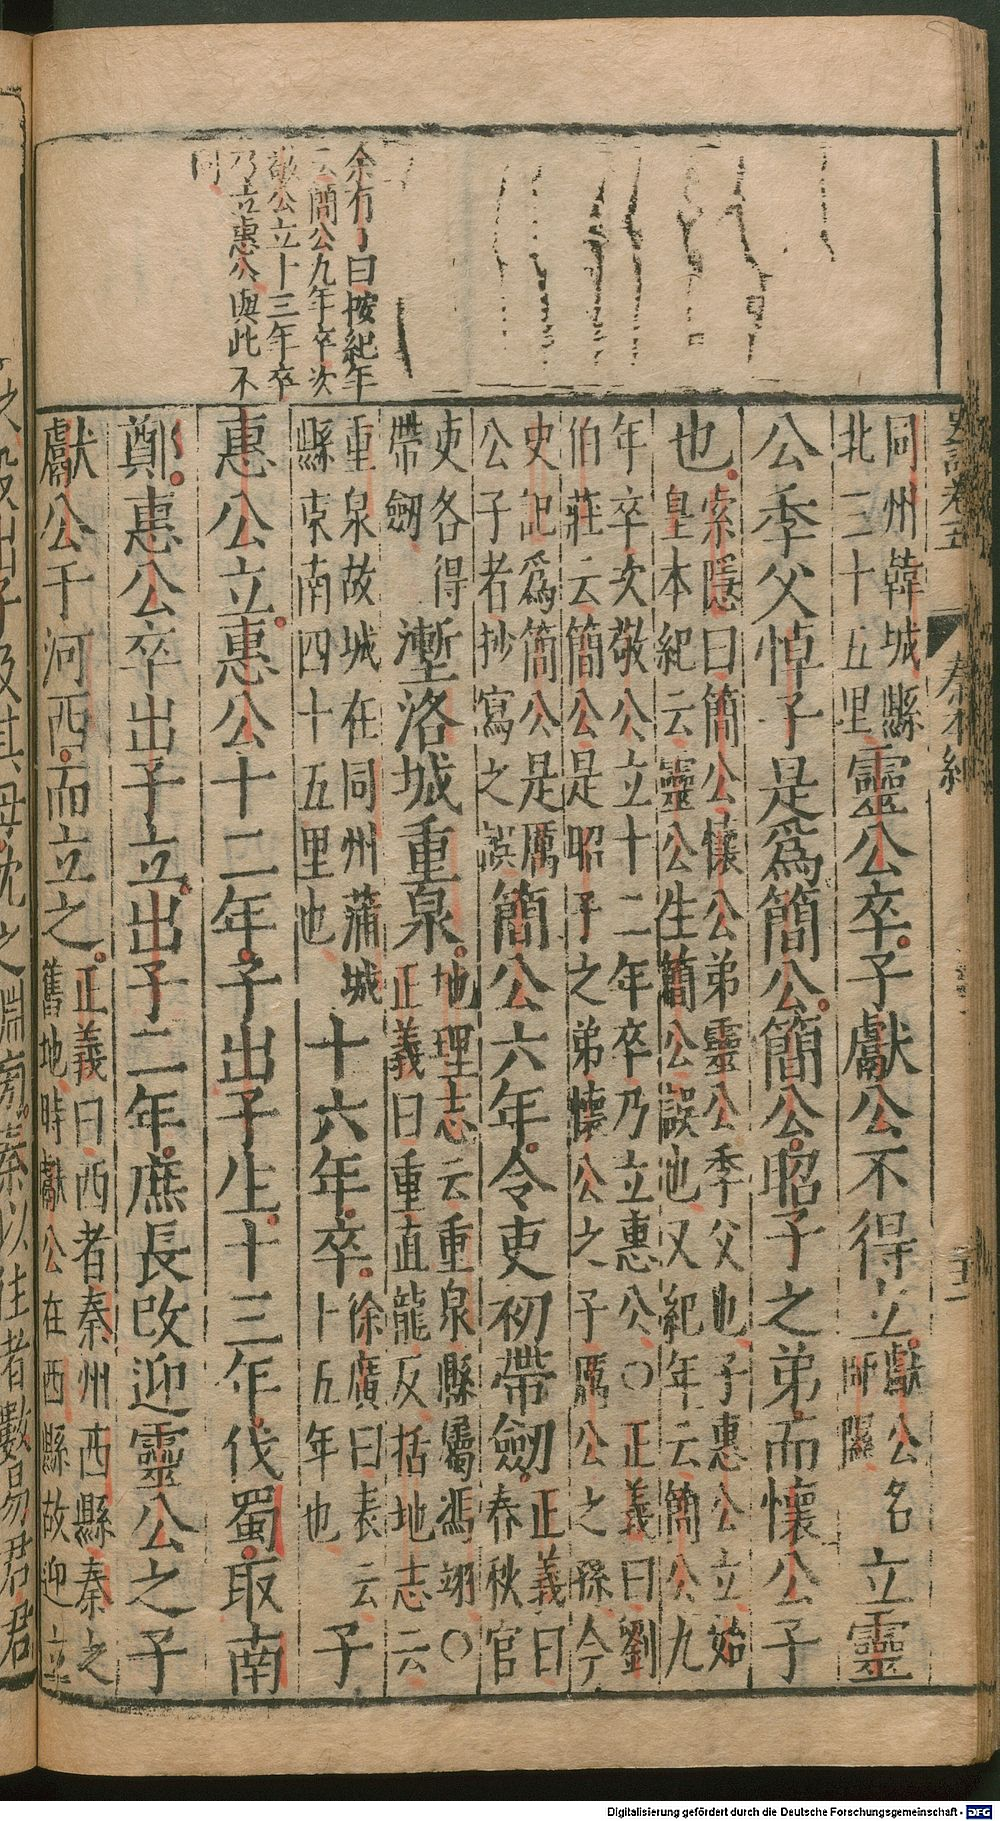 史記卷五　秦本紀
余有丁曰按紀年
云簡公九年卒次
敬公立十三年卒
乃立惠公與此不
同
同州韓城縣北三十五里靈公卒子獻公不得立獻公名師隰立靈
公季父悼子是爲簡公簡公昭子之弟而懷公子
也索隱曰簡公懷公弟靈公季父也子惠公立始皇本紀云靈公生簡公誤也又紀年云簡公九
年卒次敬公立十二年卒乃立惠公○正義曰劉伯莊云簡公是昭子之弟懷公之子厲公之孫今
史記爲簡公是厲公子者抄寫之誤簡公六年令吏初帶劔正義曰春秋官
吏各得帶劔塹洛城重泉地理志云重泉縣屬馮翊○正義曰重直龍反括地志云
重泉故城在同州蒲城縣東南四十五里也十六年卒徐廣曰表云十五年也子
惠公立惠公十二年子出子生十三年伐蜀取南
鄭惠公卒出子立出子二年庶長改迎靈公之子
獻公于河西而立之正義曰西者秦州西縣秦之舊地時獻公在西縣故迎立
出子及其母沈之淵旁秦以往者數易君君
Digitalisierung gefördert durch die Deutsche Forschungsgemeinschaft - DFG